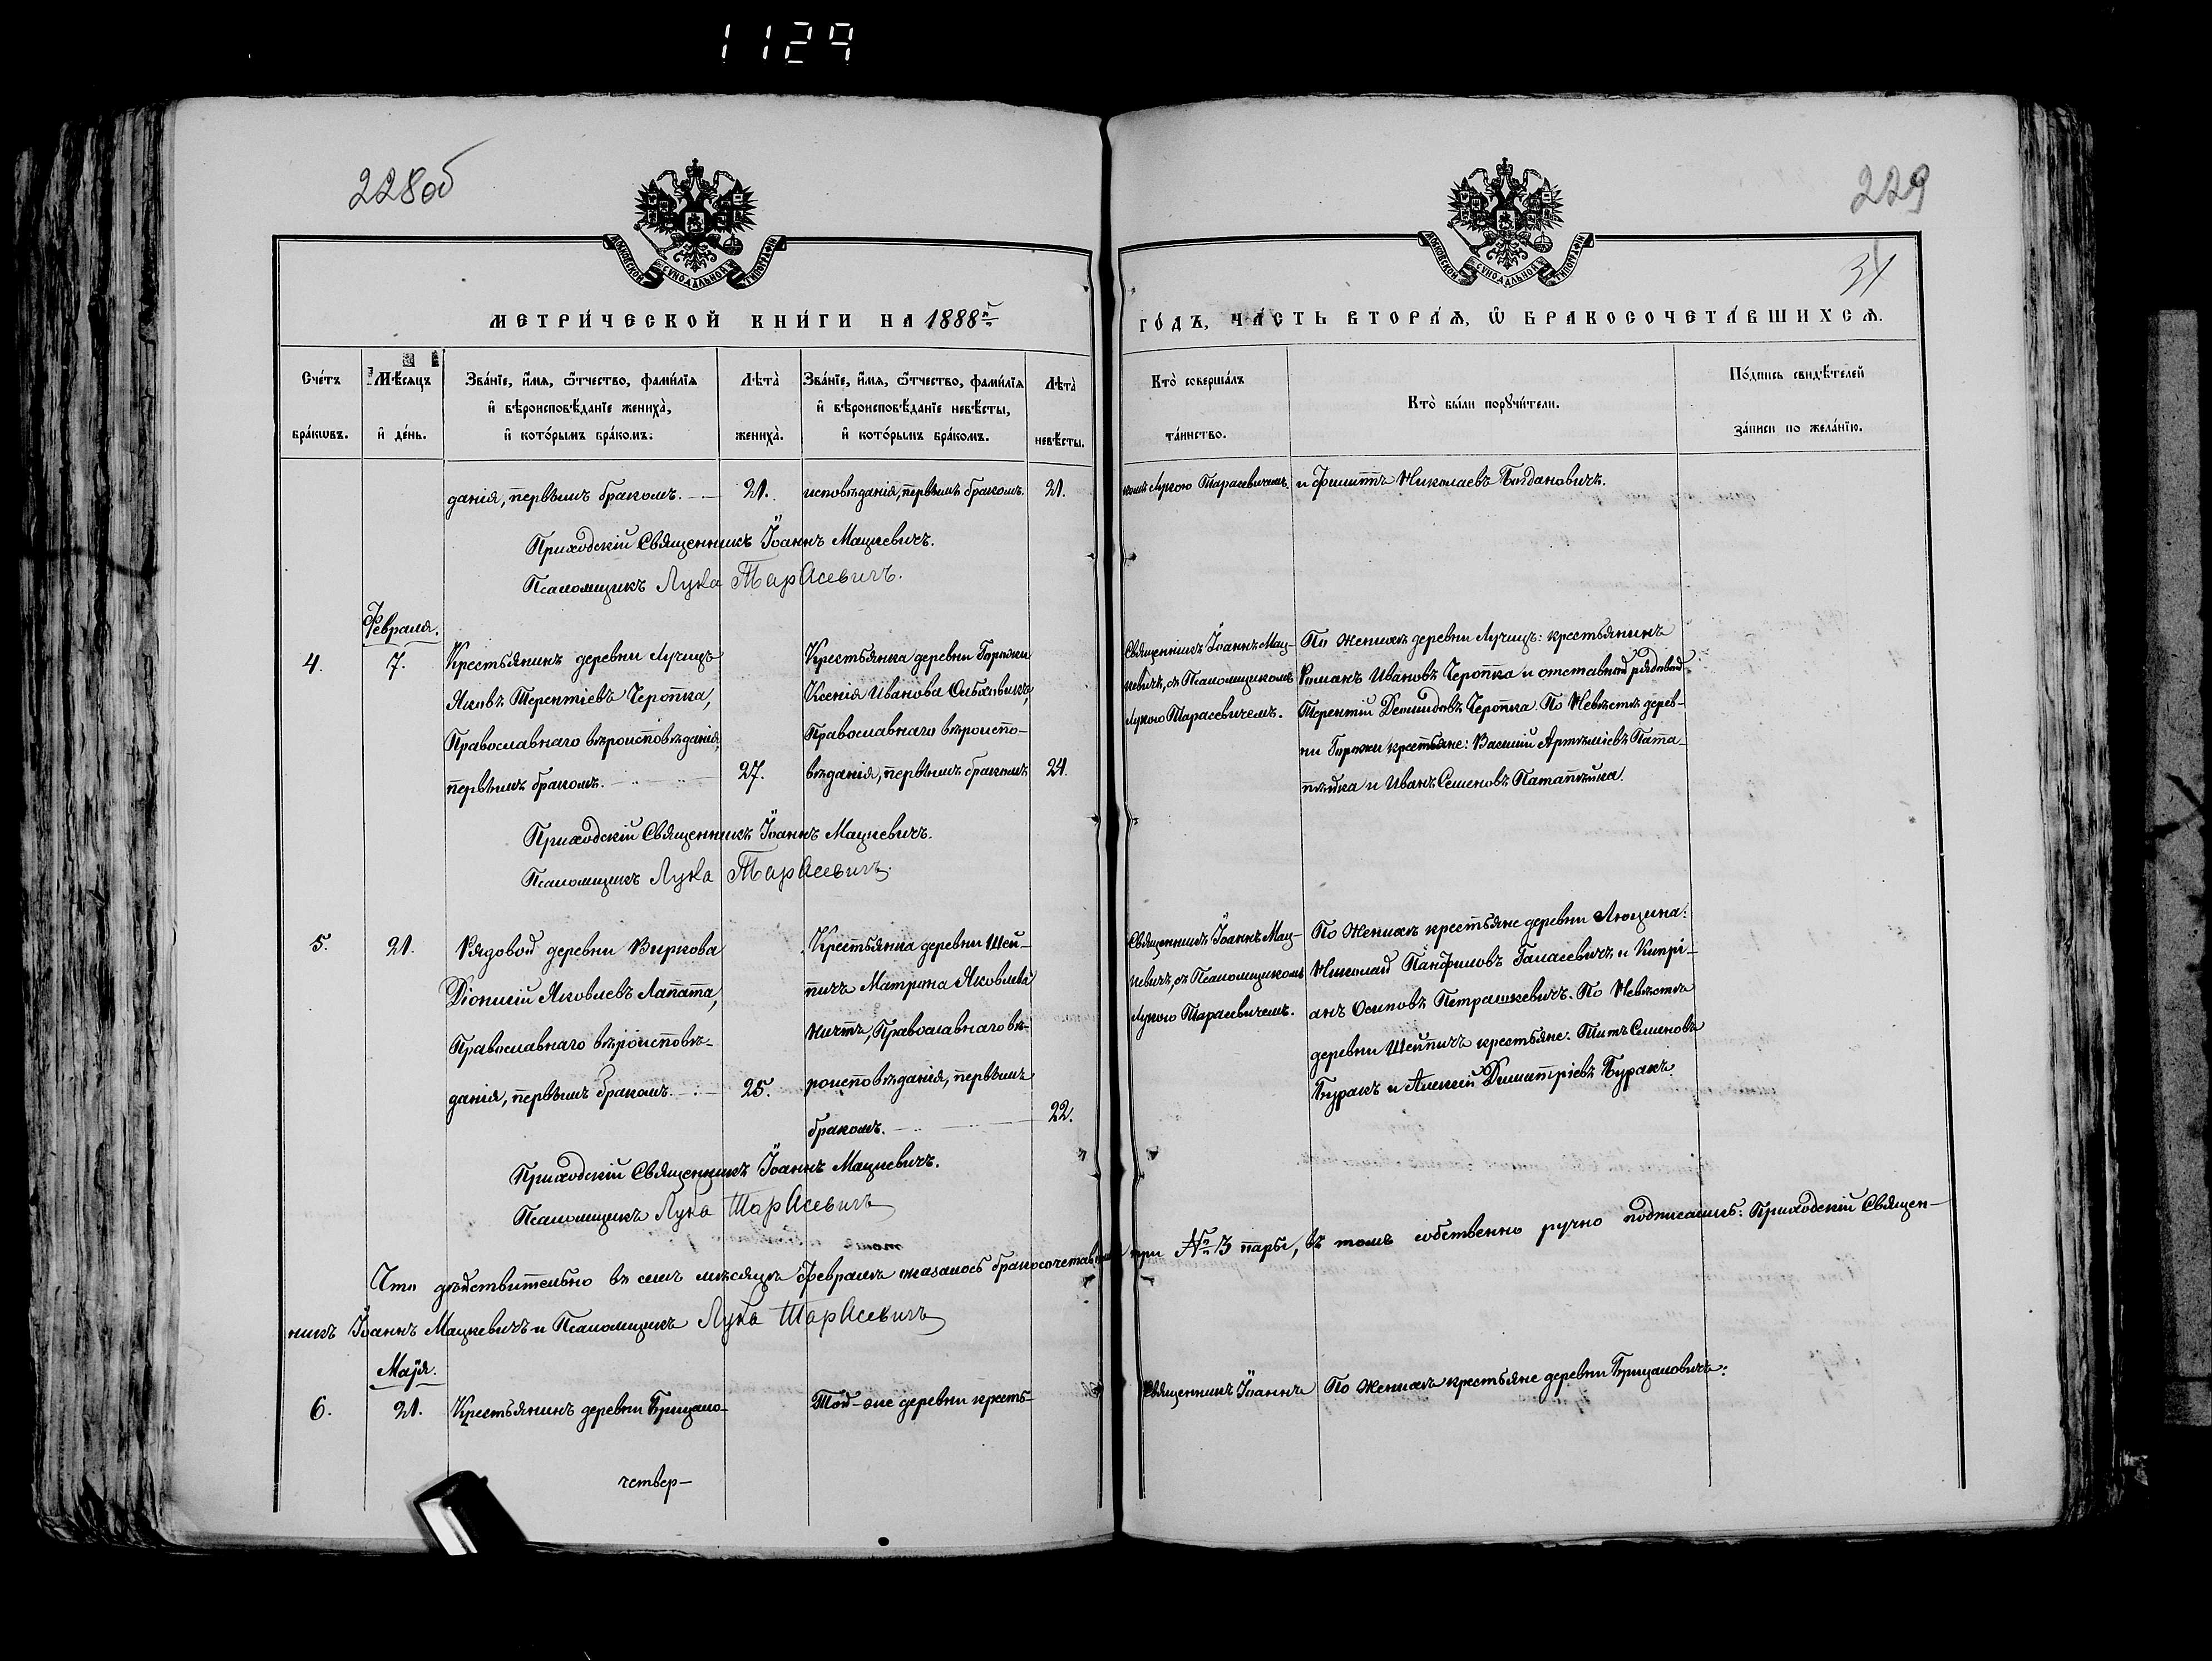 1129
228об
229
31
МОСКОВСКОЙ СѴНОДАЛЬНОЙ ТИПОГРАФІИ
МОСКОВСКОЙ СѴНОДАЛЬНОЙ ТИПОГРАФІИ
МЕТРИ́ЧЕСКОЙ КНИ́ГИ НА 1888й
ГО́ДЪ, ЧА́СТЬ ВТОРА́Я, Ѡ҆ БРАКОСОЧЕТА́ВШИХСЯ.
Сче́тъ бра́кѡвъ.
Мѣ́сяцъ и҆ де́нь.
Зва́нїе, и҆́мя, ѻ҆́тчество, фами́лїя и҆ вѣроисповѣ́данїе жениха̀, и҆ кото́рымъ бра́комъ.
Лѣта̀ жениха̀.
Зва́нїе, и҆́мя, ѻ҆́тчество, фами́лїя и҆ вѣроисповѣ́данїе невѣ́сты, и҆ кото́рымъ бра́комъ.
Лѣта̀ невѣ́сты.
Кто̀ соверша́лъ та́инство.
Кто̀ бы́ли порꙋчи́тели.
По́дпись свидѣ́телей за́писи по жела́нїю.
данія, первымъ бракомъ. 21.
исповѣданія, первымъ бракомъ. 21.
комъ Лукою Тарасевичемъ.
и Филиппъ Николаевъ Богдановичъ.
Приходскій Священникъ Іоаннъ Мацкевичъ.
Псаломщикъ Лука Тарасевичъ.
Февраля.
4. 7.
Крестьянинъ деревни Лучицъ
Яковъ Терентіевъ Черопка,
Православнаго вѣроисповѣданія,
первымъ бракомъ. 27.
Крестьянка деревни Горожи
Ксенія Иванова
Православнаго вѣроиспо-
вѣданія, первымъ бракомъ 24.
Священникъ Іоаннъ Мац-
кевичъ, съ Псаломщикомъ
Лукою Тарасевичемъ.
По Женихѣ деревни Лучицъ: крестьянинъ
Романъ Ивановъ Черопка и отставной рядовой
Терентій Демидовъ Черопка. По Невѣстѣ дерев-
ни Горожи крестьяне: Василій Артеміевъ Пата-
пейка и Иванъ Семеновъ Патапейка.
Приходскій Священникъ Іоаннъ Мацкевичъ.
Псаломщикъ Лука Тарасевичъ.
5. 21.
Рядовой деревни Виркова
Діонисій Яковлевъ Лапата,
Православнаго вѣроисповѣ-
данія, первымъ бракомъ. 25.
Крестьянка деревни Шей-
пичъ Матрона Яковлева
Православнаго вѣ-
роисповѣданія, первымъ
бракомъ. 22.
Священникъ Іоаннъ Мац-
кевичъ, съ Псаломщикомъ
Лукою Тарасевичемъ.
По Женихѣ крестьяне деревни Лющина:
Николай Панфиловъ Галасевичъ и Кипрі-
анъ Осиповъ Петрашкевичъ. По Невѣстѣ
деревни Шейпичъ крестьяне: Титъ Семеновъ
Буракъ и Алексій Димитріевъ Буракъ.
Приходскій Священникъ Іоаннъ Мацкевичъ.
Псаломщикъ Лука Тарасевичъ
Что дѣйствительно въ семъ мѣсяцѣ Февралѣ оказалось бракосочетав при № 3 пары, въ томъ собственно ручно подписались: Приходскій Священ-
никъ Іоаннъ Мацкевичъ и Псаломщикъ Лука Тарасевичъ
Маія.
6. 21.
Крестьянинъ деревни Брицало-
Той-же деревни кресть-
Священникъ Іоаннъ
По Женихѣ крестьяне деревни Брицаловичъ:
четвер-